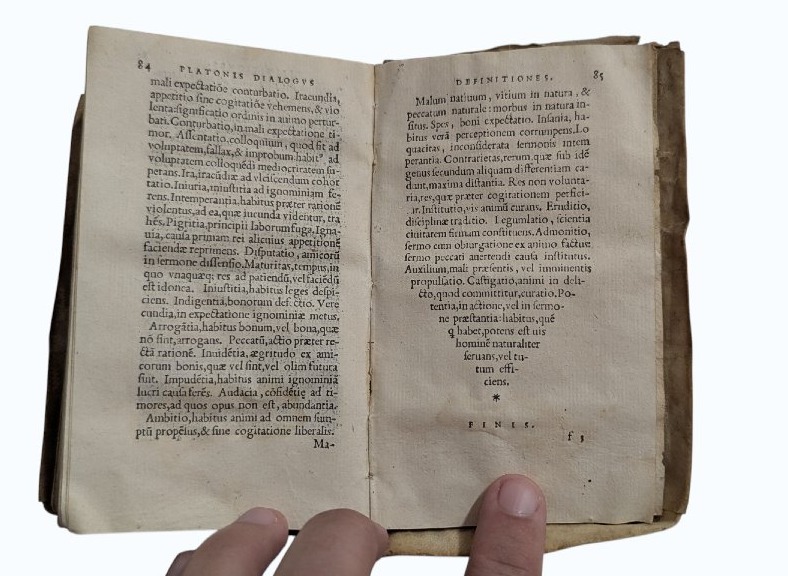 84 PLATONIS DIALOGVS
mali expectatiõe conturbatio. Iracundia,
appetitio sine cogitatiõe vehemens, & vio
lenta: significatio ordinis in animo pertur-
bati. Conturbatio, in mali expectatione ti-
mor. Assentatio, colloquium, quod sit ad
voluptatem, fallax, & improbum: habitꝰ ad
voluptatem colloquẽdi mediocritatem su-
perans. Ira, iracũdiæ ad vlciscendum cohor
tatio. Iniuria, iniustitia ad ignominiam fe-
rens. Intemperantia, habitus præter rationẽ
violentus, ad ea, quæ iucunda videntur, tra
hẽs. Pigritia, principii laborum fuga. Igna-
uia, causa primam rei alicuius appetitionẽ
faciendæ reprimens. Disputatio, amicorũ
in sermone dissensio. Maturitas, tempus, in
quo vnaquæq; res ad patiendũ, vel faciẽdũ
est idonea. Iniustitia, habitus leges despi-
ciens. Indigentia, bonorum defectio. Vere
cundia, in expectatione ignominiæ metus.
Arrogãtia, habitus bonum, vel bona, quæ
nõ sint, arrogans. Peccatũ, actio præter re-
ctã rationẽ. Inuidẽtia, ægritudo ex ami-
corum bonis, quæ vel sint, vel olim futura
sint. Impudẽtia, habitus animi ignominiã
lucri causa ferẽs. Audacia, cõfidẽtię ad ti-
mores, ad quos opus non est, abundantia.
Ambitio, habitus animi ad omnem sum-
ptũ propẽsus, & sine cogitatione liberalis.
Ma-
DEFINITIONES. 85
Malum natiuum, vitium in natura, &
peccatum naturale: morbus in natura in-
situs. Spes, boni expectatio. Insania, ha-
bitus verã perceptionem corrumpens. Lo
quacitas, inconsiderata sermonis intem
perantia. Contrarietas, rerum, quæ sub idẽ
genus secundum aliquam differentiam ca-
dunt, maxima distantia. Res non volunta-
ria, res, quæ præter cogitationem perfici-
tur. Institutio, vis animũ curans. Eruditio,
disciplinæ traditio. Legumlatio, scientia
ciuitatem firmam constituens. Admonitio,
sermo cum obiurgatione ex animo factus:
sermo peccati auertendi causa institutus.
Auxilium, mali præsentis, vel imminentis
propulsatio. Castigatio, animi in deli-
cto, quod committitur, curatio. Po-
tentia, in actione, vel in sermo-
ne præstantia: habitus, quẽ
q habet, potens est: uis
hominẽ naturaliter
seruans, vel tu-
tum effi-
ciens.
*
FINIS.
f 3